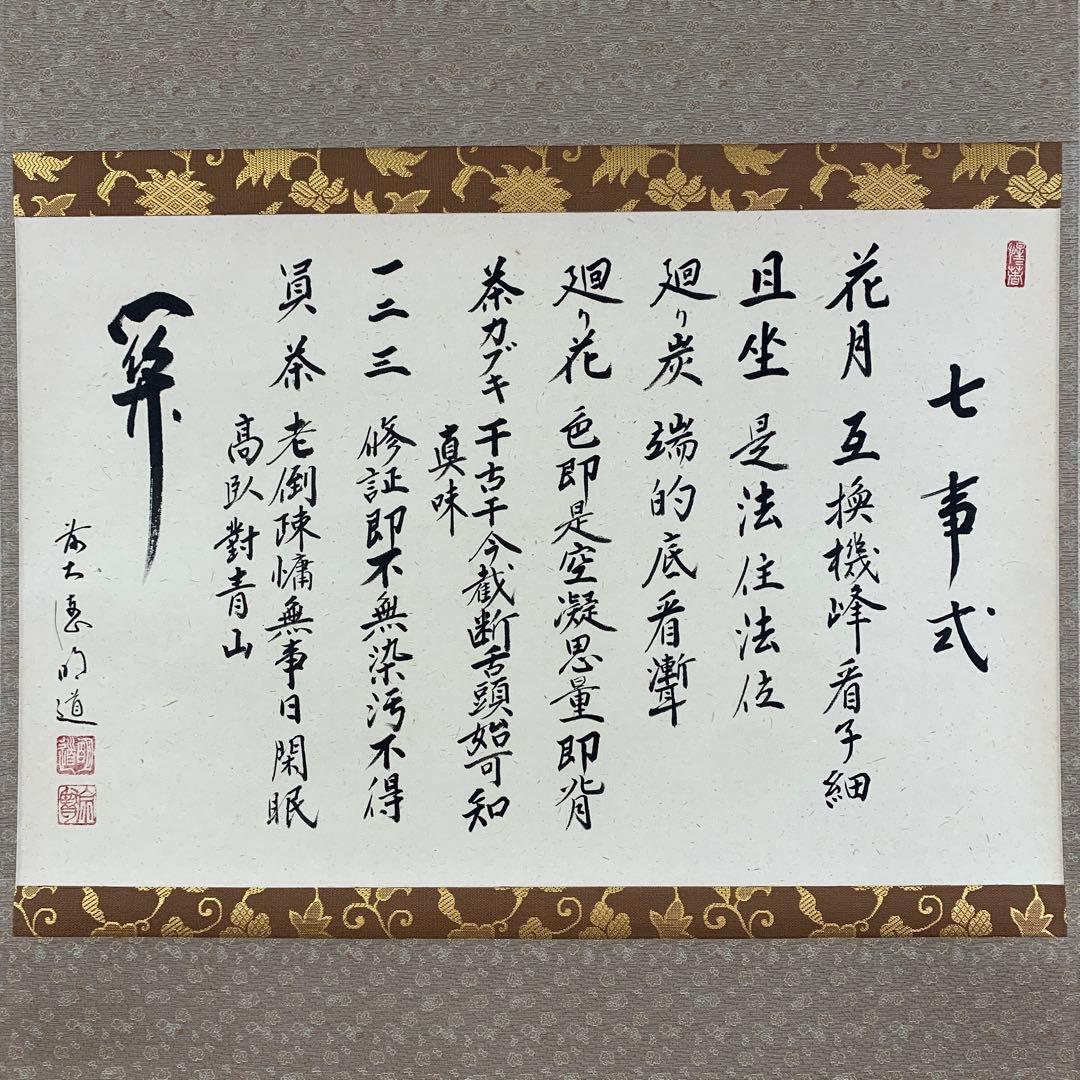 七事式
花月 互換機峰看子細
且坐 是法住法位
廻り炭 端的底看漸聻
廻り花 色即是空凝思量即背
茶カブキ 千古千今截断舌頭始可知
真味
一二三 修証即不無染污不得
員茶 老倒疎慵無事日閑眠
高臥對青山
前大徳明道